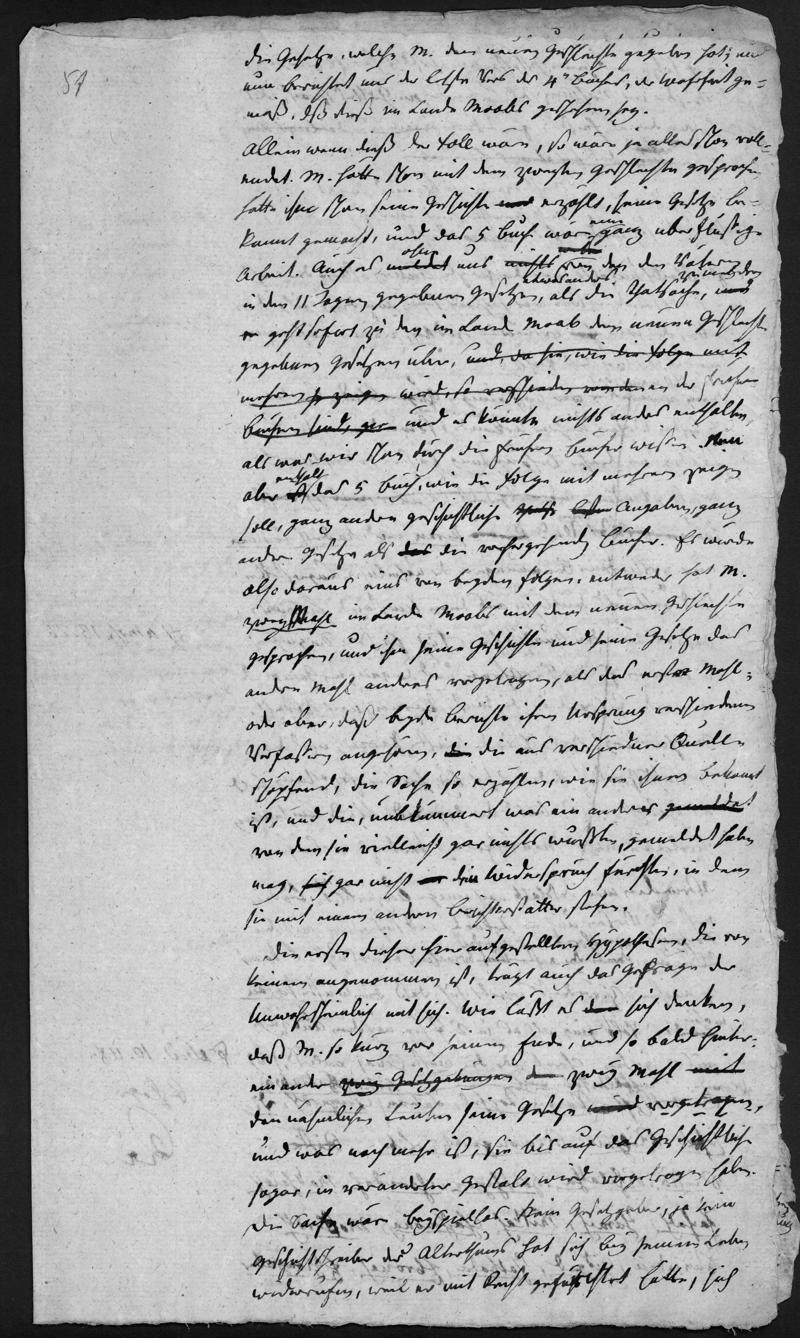 54
die Gesetze, welche M. dem neuen Geschlechte gegeben hat; und
nun berichtet uns der letzte Vers des 4n Buches, der Wahrheit ge-
mäß, daß dieß im Lande Moabs geschehen sey.
Allein wenn dieß der Fall wäre, so wäre ja alles schon voll-
endet. M. hätte schon mit dem zweyten Geschlechte gesprochen
hätte ihm schon seine Geschichte erzählt, seine Gesetze be-
kannt gemacht, und das 5 Buch wäre eine ganz überflüssige
Arbeit. Auch es meldet uns nichts von den den Vätern
in den 11 Tagen gegebenen Gesetzen, als die Thatsache, und
er geht sofort zu den im Lande Moab dem neuen Geschlechte
gegebenen Gesetzen über, und, da sie, wie die Folge mit
mehrerm zeigen wird, so verschieden von denen der frühern
Bücher sind, und es könnte nichts anders enthalten,
als was wir schon durch die frühern Bücher wissen. Nun
aber enthält das 5 Buch, wie die Folge mit mehrerm zeigen
soll, ganz andere geschichtliche Angaben, ganz
andere Gesetze als die vorhergehenden Bücher. Es würde
also daraus eins von beyden folgen, entweder hat M.
zwey Mahl im Lande Moabs mit dem neuen Geschlechte
gesprochen, und ihm seine Geschichte und seine Gesetze das
andere Mahl anders vorgetragen, als das erste Mahl;
oder aber, daß beyde Berichte ihren Ursprung verschiedenen
Verfassern angehören, die aus verschiedner Quelle
schöpfend, die Sache so erzählen, wie sie ihnen bekannt
ist, und die, unbekümmert was ein anderer gemeldet
von dem sie vielleicht gar nichts wußten, gemeldet haben
mag, sich gar nicht den Widerspruch fürchten, in dem
sie mit einem andern Berichterstatter stehen.
Die erste dieser hier aufgestellten Hypothesen, die von
keinem angenommen ist, trägt auch das Gepräge der
Unwahrscheinlich mit sich. Wie läßt es sich denken,
daß M. so kurz vor seinem Ende, und so bald hinter-
einander zwey Gesetzgebungen zwey Mahl mit
den nähmlichen Leuten seine Gesetze vorgetragen,
und was noch mehr ist, sie bis auf das Geschichtliche
sogar, in veränderter Gestalt wird vorgetragen haben.
Die Sache wäre beyspiellos. Kein Gesetzgeber, ja kein
Geschichtschreiber des Alterthums hat sich bey seinem Leben
widerrufen, weil er mit Recht gefürchtet hätte, sich